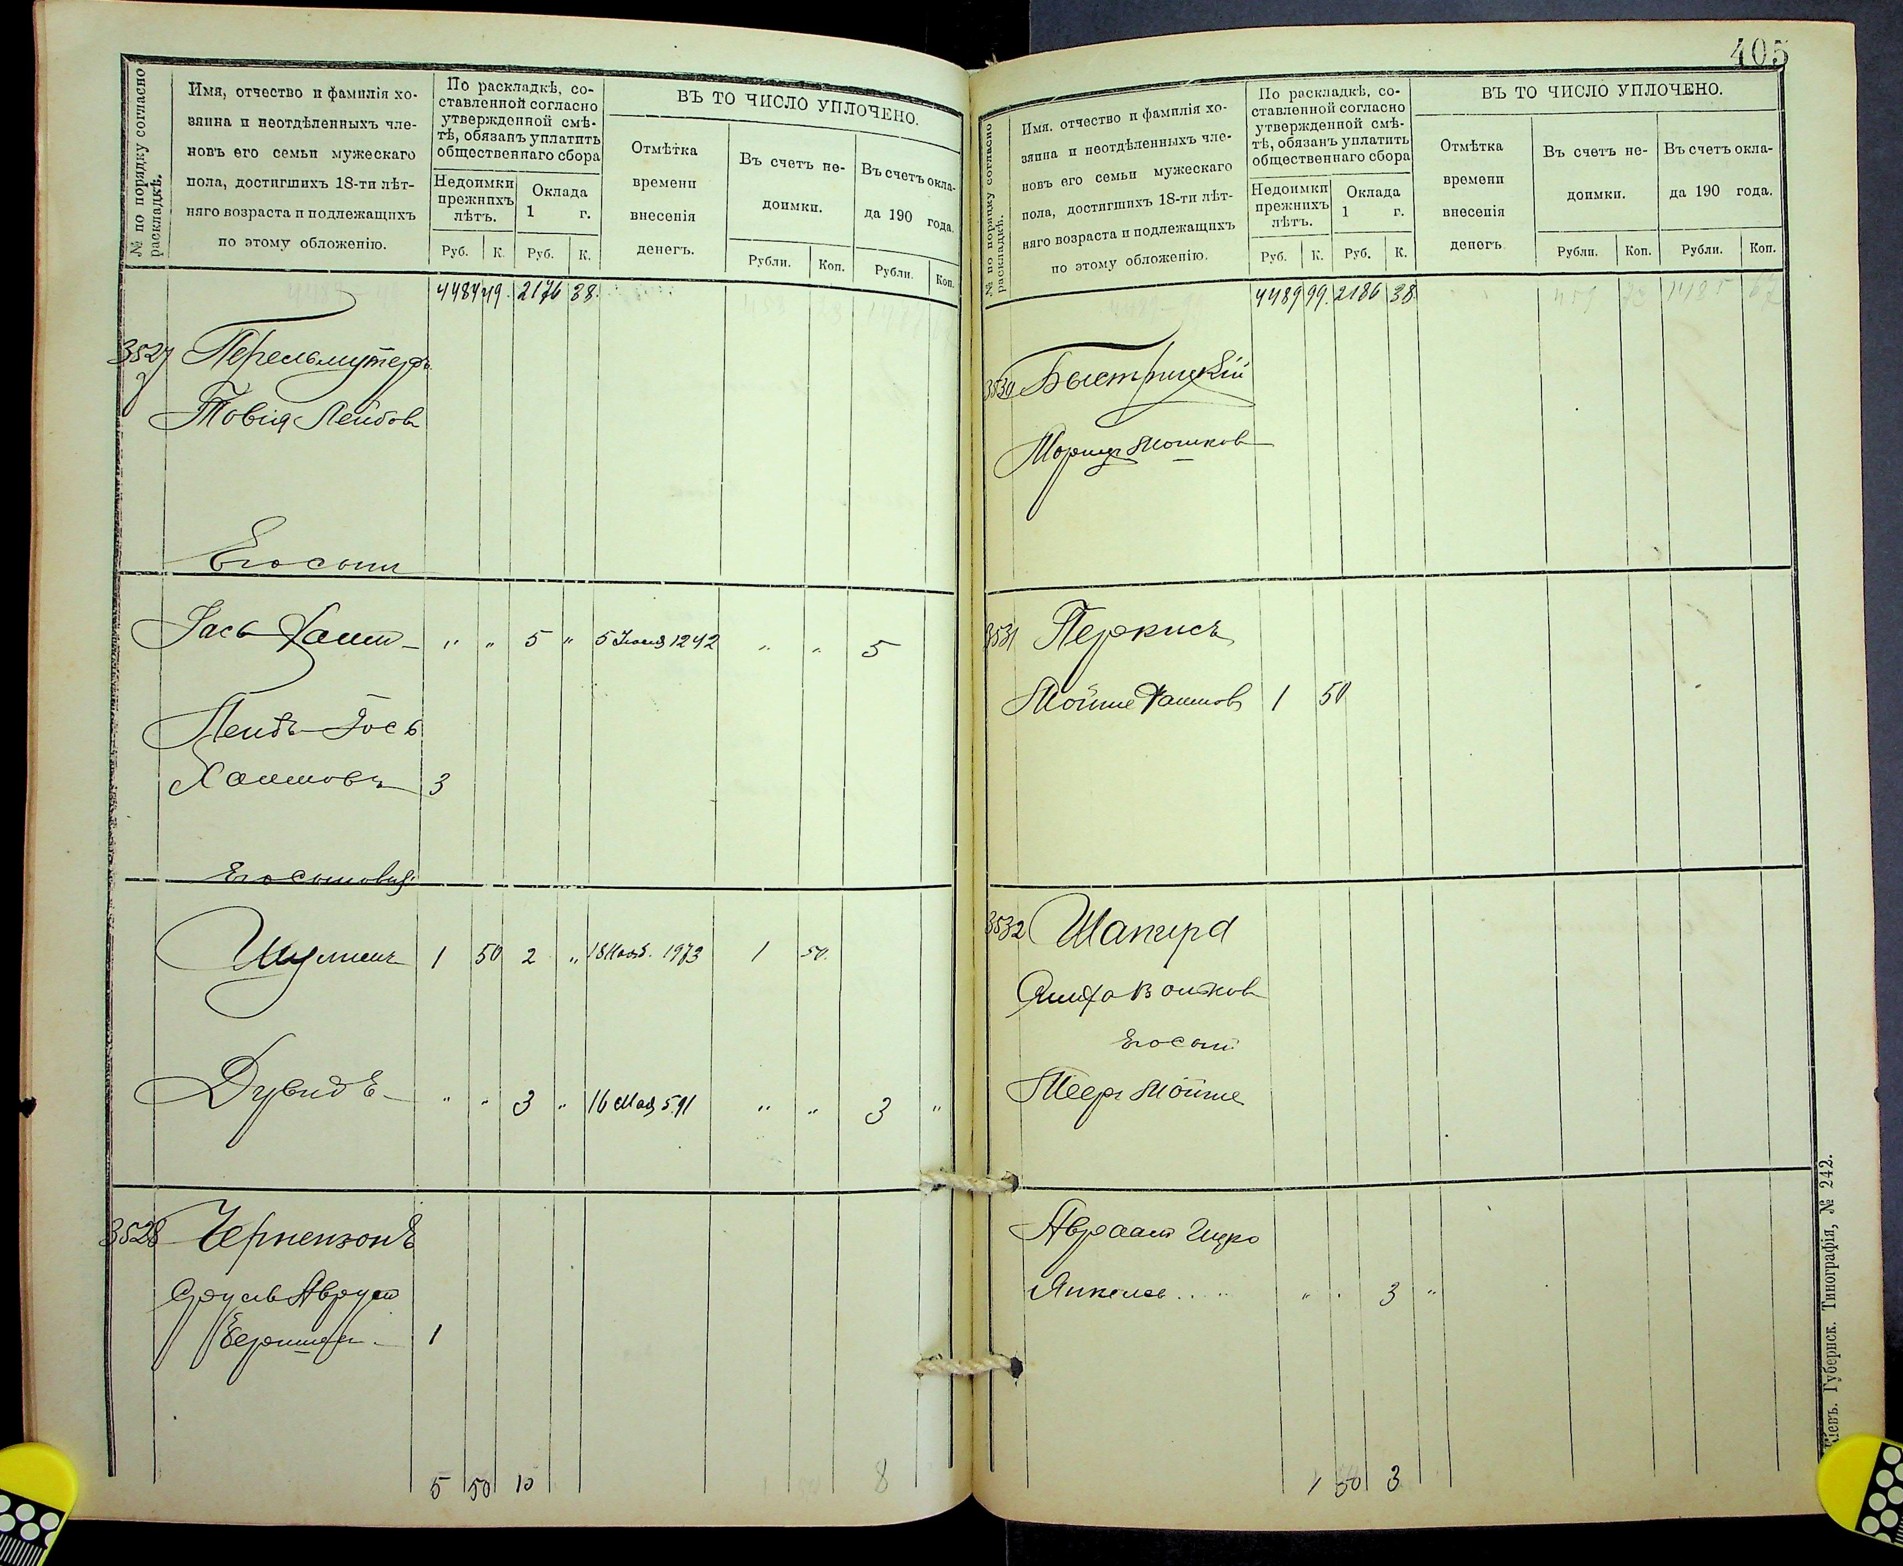 405
№ по порядку согласно раскладкѣ.
Имя, отчество и фамилія хо-
зяина и неотдѣленныхъ чле-
новъ его семьи мужескаго
пола, достигшихъ 18-ти лѣт-
няго возраста и подлежащихъ
по этому обложенію.
По раскладкѣ, со-
ставленной согласно
утвержденной смѣ-
тѣ, обязанъ уплатить
общественнаго сбора
Недоимки
прежнихъ
лѣтъ.
Оклада
1 г.
Руб. К. Руб. К.
ВЪ ТО ЧИСЛО УПЛОЧЕНО.
Отмѣтка
времени
внесенія
денегъ.
Въ счетъ не-
доимки.
Въ счетъ окла-
да 190 года.
Рубли. Коп. Рубли. Коп.
4484 49. 2176 38.
3527 Перельмутеръ
Товія Лейбов
Его сыни
Іось Хаим - " " 5 " 5 Іюня 1242 " " 5
Лейбъ-Іось
Хаимовъ 3
Его сыновья:
Шулимъ 1 50 2 " 18 Нояб. 1973 1 50.
Дувидъ - " " 3 " 16 Мая 591 " " 3 "
3528 Чернензонъ
Сруль Аврум
Бершкъ - 1
5 50 10 8
№ по порядку согласно раскладкѣ.
Имя, отчество и фамилія хо-
зяина и неотдѣленныхъ чле-
новъ его семьи мужескаго
пола, достигшихъ 18-ти лѣт-
няго возраста и подлежащихъ
по этому обложенію.
По раскладкѣ, со-
ставленной согласно
утвержденной смѣ-
тѣ, обязанъ уплатить
общественнаго сбора
Недоимки
прежнихъ
лѣтъ.
Оклада
1 г.
Руб. К. Руб. К.
ВЪ ТО ЧИСЛО УПЛОЧЕНО.
Отмѣтка
времени
внесенія
денегъ.
Въ счетъ не-
доимки.
Въ счетъ окла-
да 190 года.
Рубли. Коп. Рубли. Коп.
4489 99. 2186 38
Быстрицкій
Морицъ Мошков
3531 Перкисъ
Мойше Хаимов 1 50
3532 Шапира
Волков
Его сыни
Меер Мойше
Авраам Ицко
Янкель . . " . 3 "
1 50 3
Кіевъ. Губернск. Типографія, № 242.